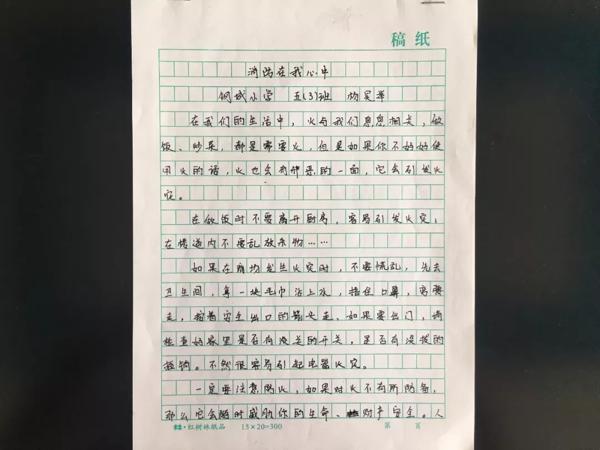 稿纸
消防在我心中
钢城小学 五(3)班
在我们的生活中，火与我们息息相关，做
饭、炒菜，都是需要火，但是如果你不好好使
用火的话，火也会有邪恶的一面，它会引发火
灾。
在做饭时不要离开厨房，容易引发火灾，
在楼道内不要乱放杂物……
如果在商场发生火灾时，不要慌乱，先去
卫生间，拿一块毛巾沾上水，捂住口鼻，弯腰
走，按着安全出口的路安走。如果要出门，请
检查好家里是否有没关的开关，是否有没拔的
插销。不然很容易引起电器火灾。
一定要注意防火，如果对火不有所防备，
那么它会随时威胁你的生命、财产安全。人
红树林纸品 15×20=300 第 页